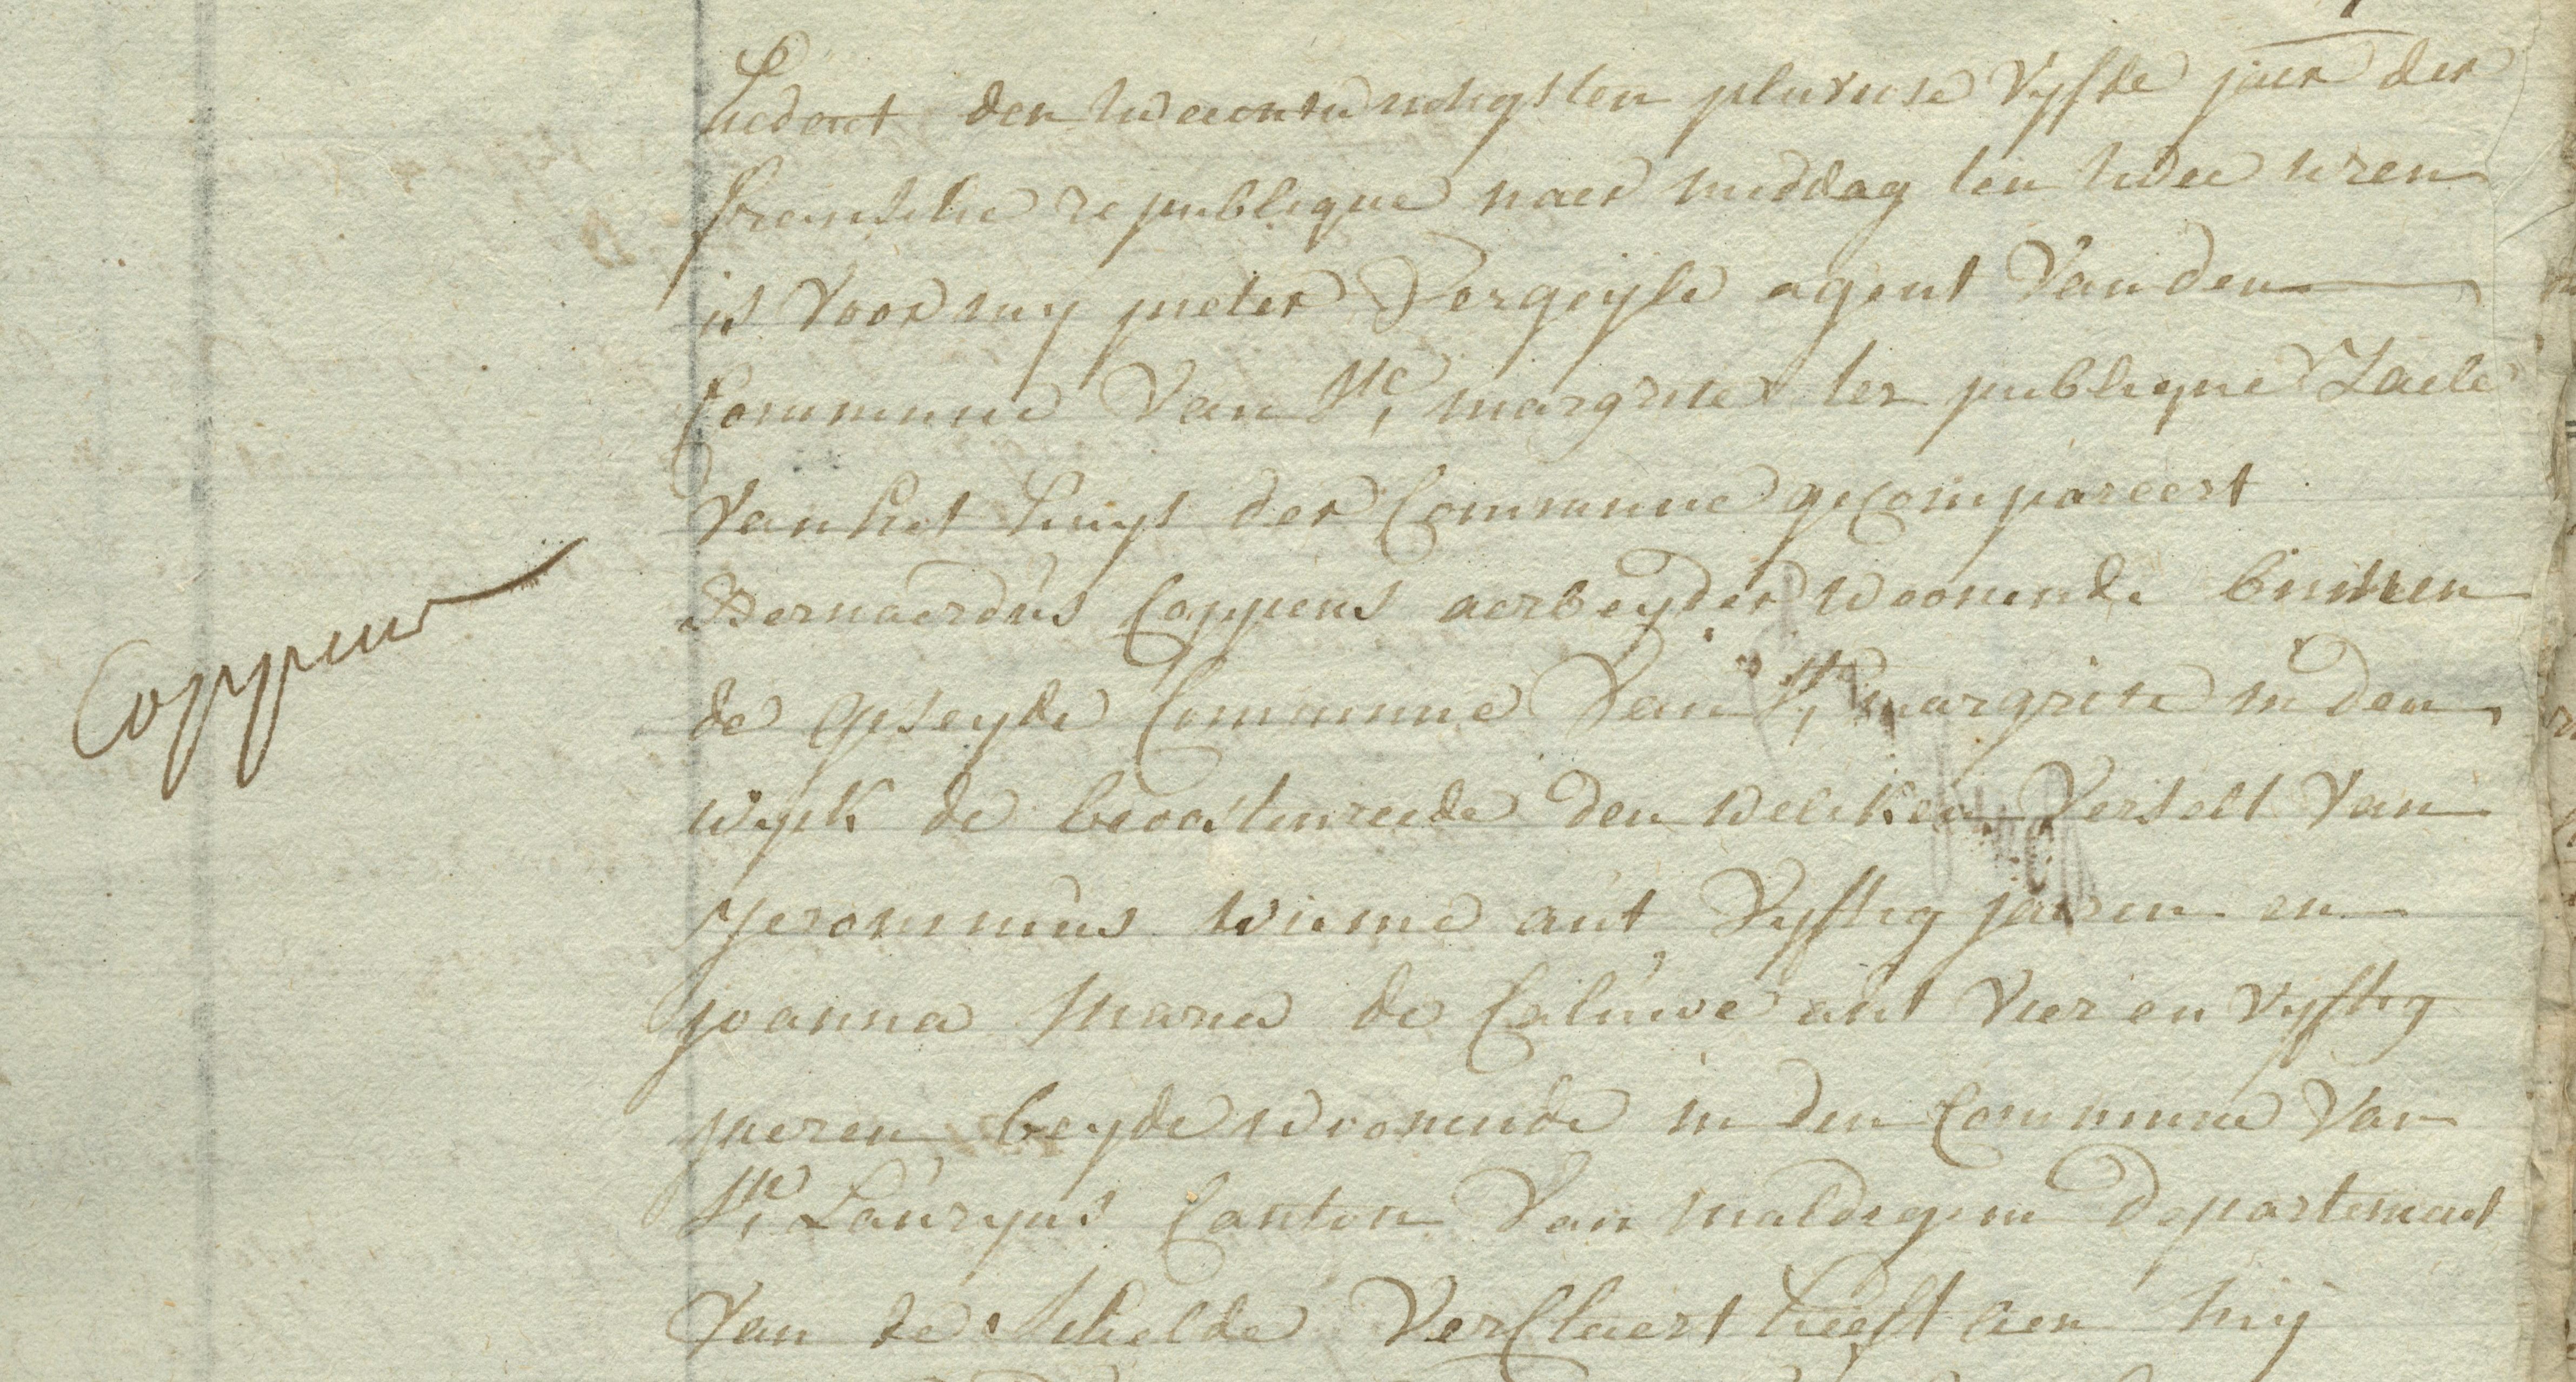 hedent den tweeontwindigsten pluviuse Vyfde jaer der
fransche republique naer middag ten twee uren
is Voor my pieter Vergeyle agent Van den
Commune Van Ste, margrite ter publique Zaele
Van het huys der Commune gecompareert
Bernaerdus Coppens aerbeyder woonende binnen
de opseyde Commune Van Ste, margrite in den
Coppens
wyck de beoostenreede den welcken Verselt Van
Jeronimus wieme aut Vyftig jaeren en
joanna Marie de Caluwe aut Vier en vyftig
jaeren beyde woonende in den Commune Van
Ste, Lauryns Canton Van Maldegem departement
Van de Schelde Verclaert heeft aen my